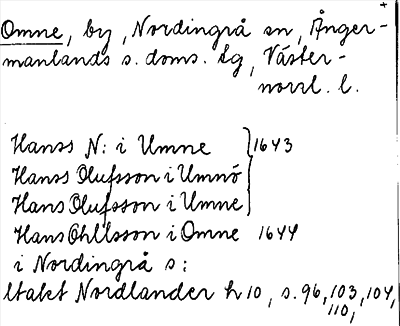 Omne, by, Nordingrå sn, Ånger-
manlands s. doms. lg, Väster-
norrl. l.
Hans N: i Umne } 1643
Hans Olufsson i Umnö
Hans Olufsson i Umne
Hans Ohllsson i Omne 1644
i Nordingrå s:
ltalet Nordlander h 10, s. 96, 103, 104,
110,